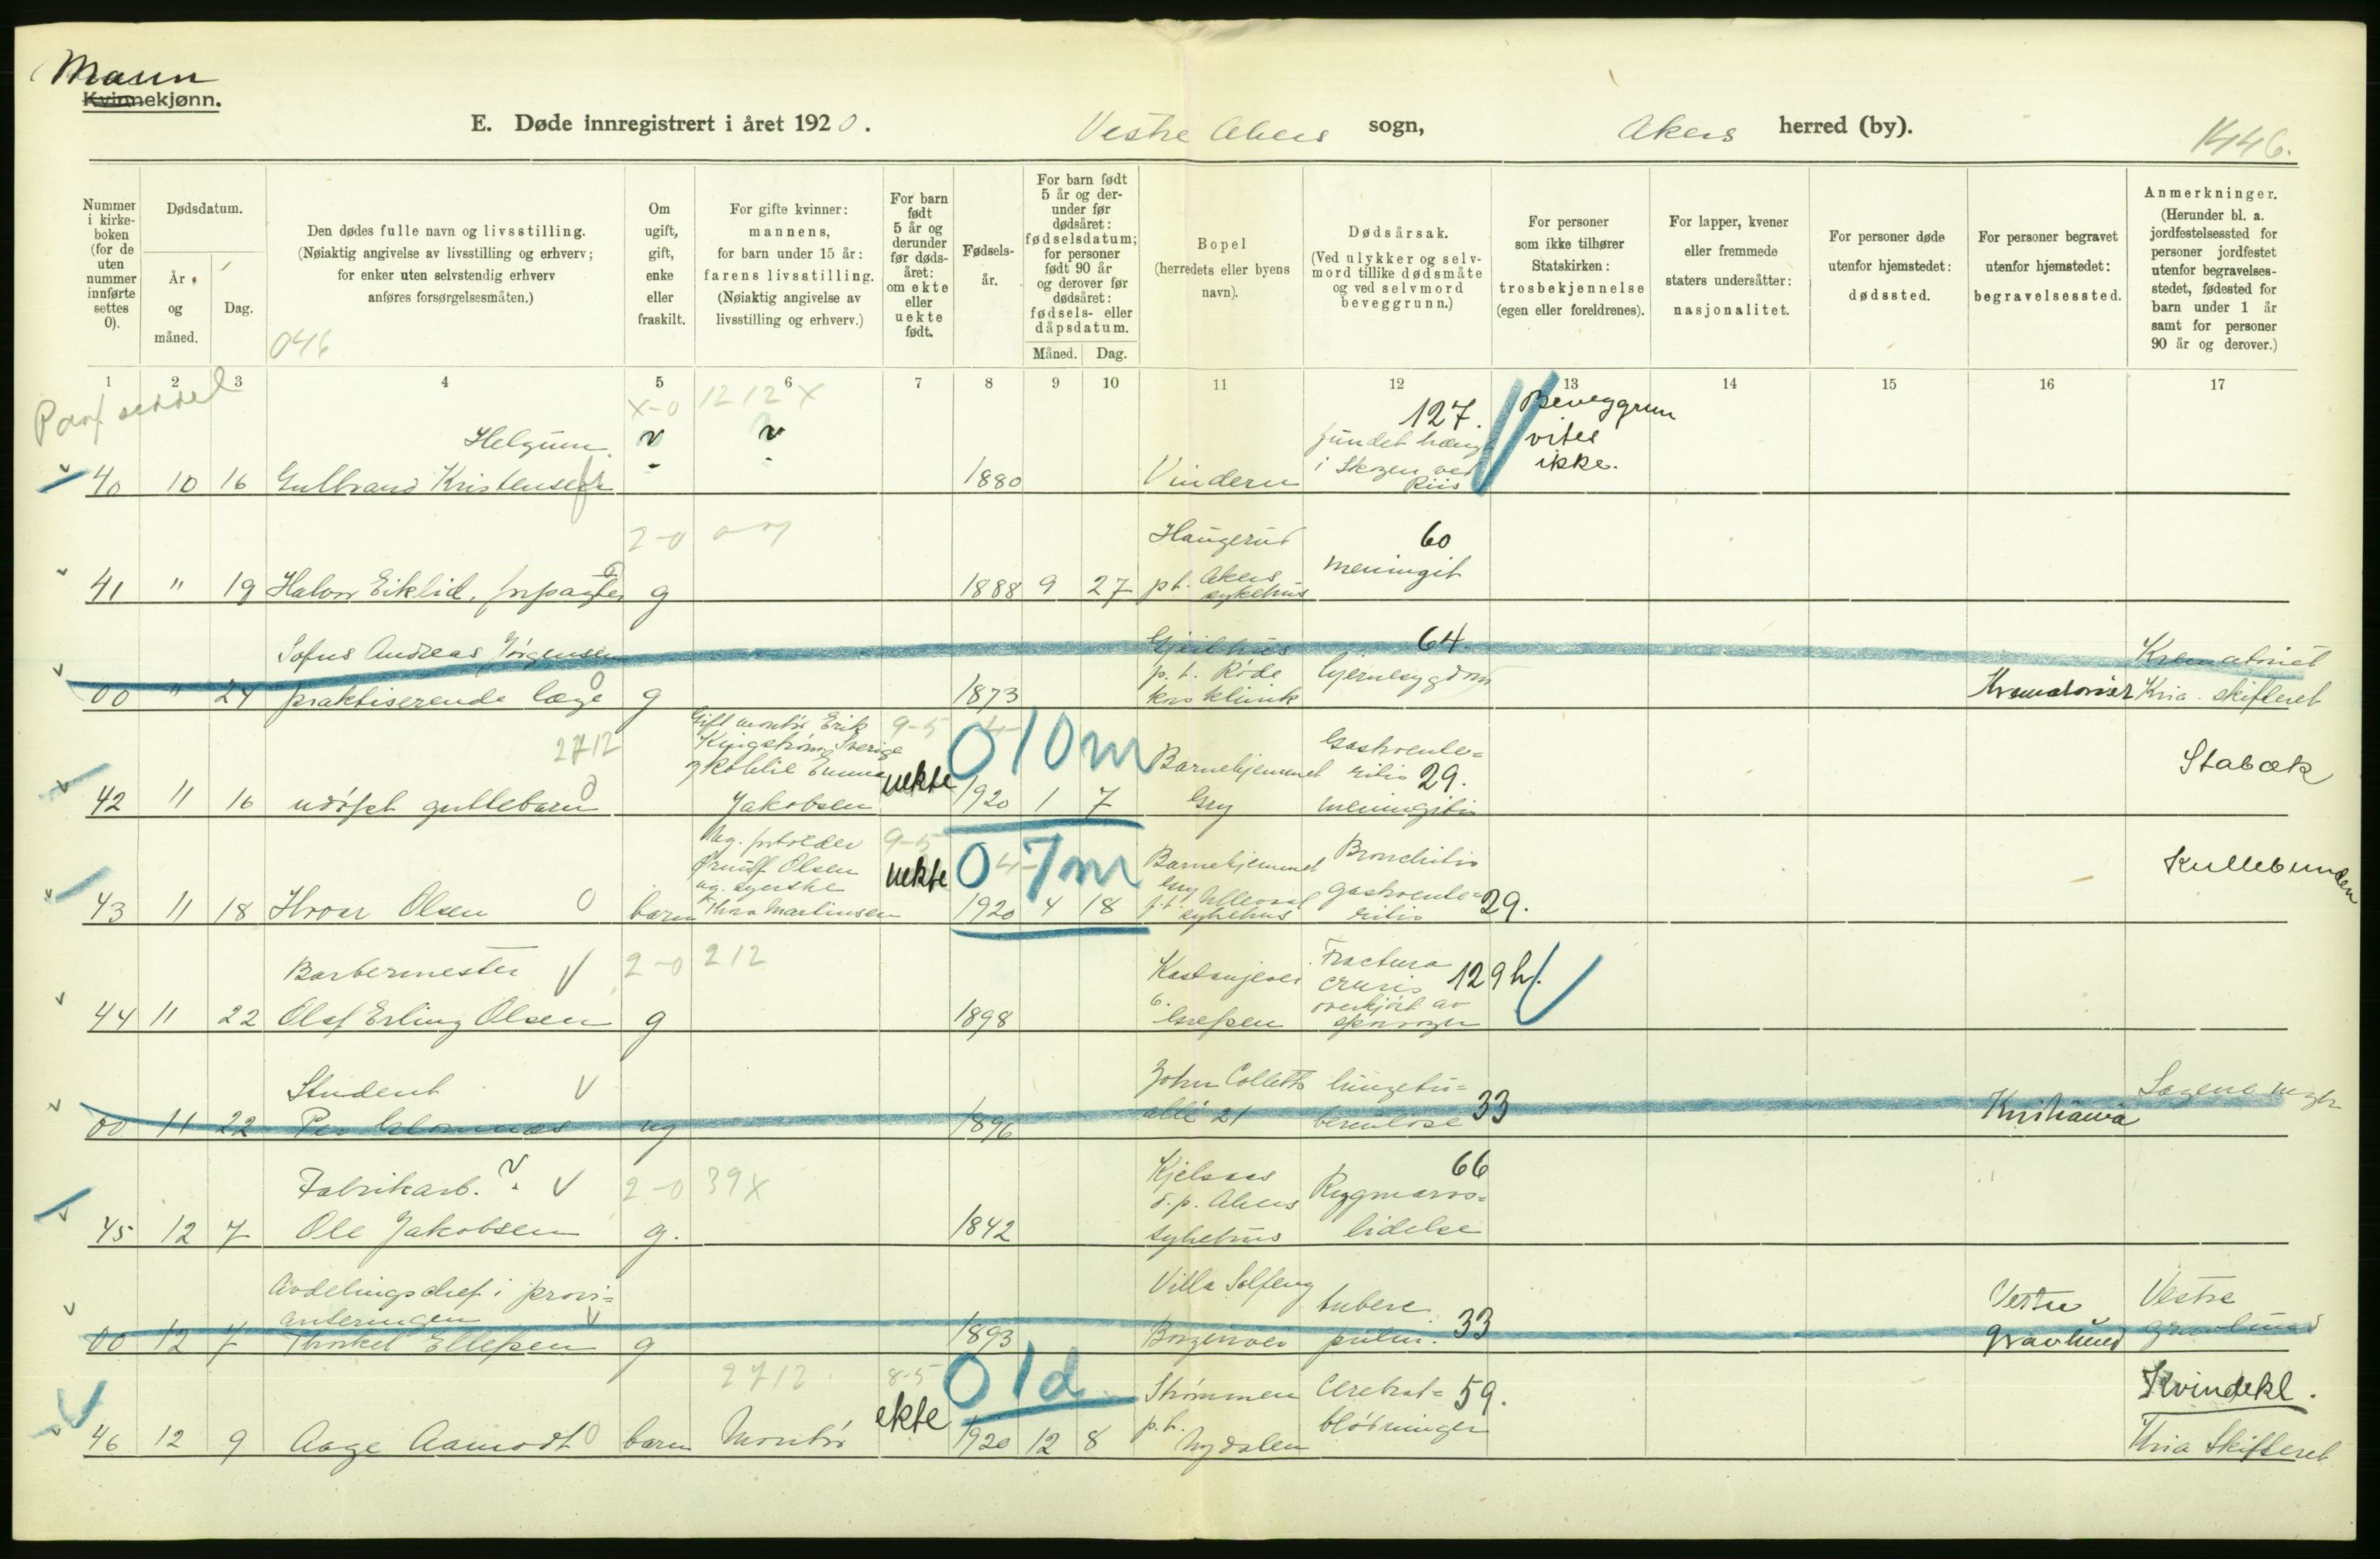 Mann
Kvinnekjønn.
E. Døde innregistrert i året 1920.
Vestre Akers sogn,
Akers herred (by).
1446.
Nummer i kirke- boken (for de uten nummer innførte settes 0).
Dødsdatum.
År og måned.
Dag.
Den dødes fulle navn og livsstilling.
(Nøiaktig angivelse av livsstilling og erhverv;
for enker uten selvstendig erhverv
anføres forsørgelsesmåten.)
046
Om ugift, gift, enke eller fraskilt.
For gifte kvinner:
mannens,
for barn under 15 år:
farens livsstilling.
(Nøiaktig angivelse av
livsstilling og erhverv.)
For barn født 5 år og derunder før døds- året: om ekte eller uekte født.
Fødsels- år.
For barn født 5 år og der- under før dødsåret: fødselsdatum; for personer født 90 år og derover før dødsåret: fødsels- eller dåpsdatum.
Måned.
Dag.
Bopel
(herredets eller byens
navn).
Dødsårsak.
(Ved ulykker og selv-
mord tillike dødsmåte
og ved selvmord
beveggrunn.)
For personer
som ikke tilhører
Statskirken:
trosbekjennelse
(egen eller foreldrenes).
For lapper, kvener
eller fremmede
staters undersåtter:
nasjonalitet.
For personer døde
utenfor hjemstedet:
dødssted.
For personer begravet
utenfor hjemstedet:
begravelsessted.
Anmerkninger.
(Herunder bl. a.
jordfestelsessted for
personer jordfestet
utenfor begravelses-
stedet, fødested for
barn under 1 år
samt for personer
90 år og derover.)
1 2 3 4 5 6 7 8 9 10 11 12 13 14 15 16 17
x-0 1212 x
127.
Beveggrun
Helgum
fundet hængt
vites
i Skogen ved
ikke.
40 10 16 Gulbrand Kristensen 1880 Vindern Riis
2-0
Haugerud 60
meningit
41 " 19 Halvor Eiklid, forpagter g 1888 9 27 p t. Akers sykehus
Sofus Andreas Jørgensen
64
Krematoriet
p. t. Røde
hjernesygdom
00 " 24 praktiserende læge g 1873 kors klinik Krematoriet Kria. skifteret
Gift montør Erik 9-5
010m
2712
Sverige
Gastroente=
Stabæk
Barnehjemmet ritis 29.
uekte
42 11 16 udøpt guttebarn Jakobsen 1920 1 7 Gry meningitis
9-5
Olsen
07m
Barnehjemmet Bronchitis
Kullebunden
uekte
ug. syerske
Gry gastroente=
43 11 18 Hroar Olsen 0 barn Thora Martinsen 1920 4 18 p.t. Ullevaal sykehus ritis 29.
Barbermester 2-0 212
Kastanjevei Fractura
6. cruris 129 h.
overkjørt av
44 11 22 Olaf Erling Olsen g 1898 Grefsen sporvogn
Student
John Colletts lungetu=
00 11 22 Per ug 1896 allé 21 berculose 33 Kristiania
Fabrikarb. 2-0 39x
Kjelsaas 66
d. p. Akers Rygmarvs=
45 12 7 Ole Jakobsen g. 1842 sykehus lidelse
Avdelingschef i provi=
anteringen
Villa Solfeng tuberc
Vestre Vestre
00 12 7 Thorkel Ellefsen g 1893 Borgenvei pulm. 33 gravlund gravlund
2712 8-5
01d
Strømmen Cerebral= 59.
Kvindekl.
ekte
46 12 9 Aage Aamodt 0 barn Montør 1920 12 8 p.t. Nydalen blødninger Kria Skifteret